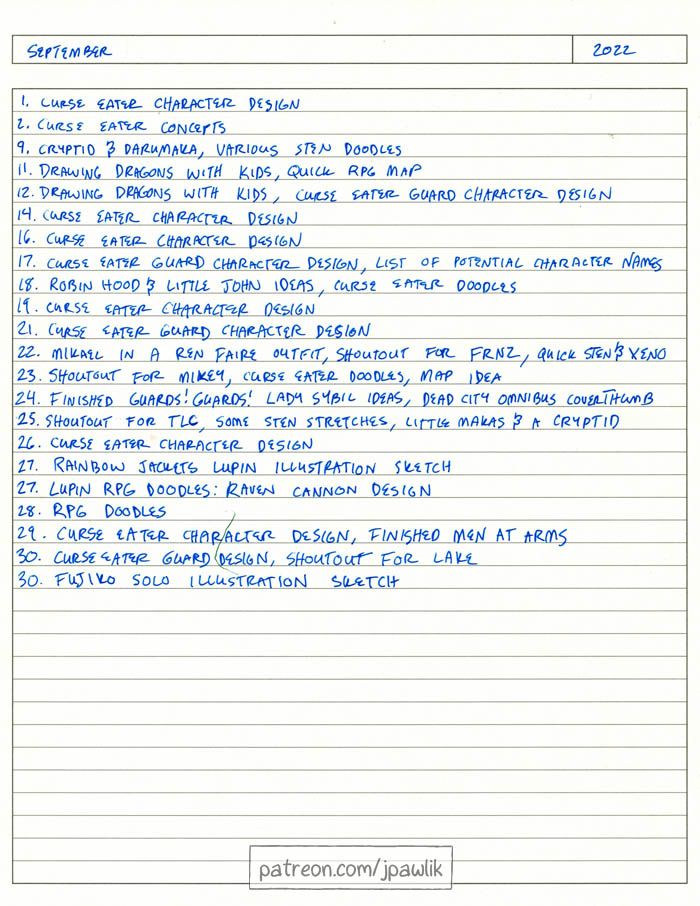 SEPTEMBER 2022
1. CURSE EATER CHARACTER DESIGN
2. CURSE EATER CONCEPTS
9. CRYPTID & DARUMAKA, VARIOUS STEN DOODLES
11. DRAWING DRAGONS WITH KIDS, QUICK RPG MAP
12. DRAWING DRAGONS WITH KIDS, CURSE EATER GUARD CHARACTER DESIGN
14. CURSE EATER CHARACTER DESIGN
16. CURSE EATER CHARACTER DESIGN
17. CURSE EATER GUARD CHARACTER DESIGN, LIST OF POTENTIAL CHARACTER NAMES
18. ROBIN HOOD & LITTLE JOHN IDEAS, CURSE EATER DOODLES
19. CURSE EATER CHARACTER DESIGN
21. CURSE EATER GUARD CHARACTER DESIGN
22. MIKAEL IN A REN FAIRE OUTFIT, SHOUTOUT FOR FRNZ, QUICK STEN & XENO
23. SHOUTOUT FOR MIKEY, CURSE EATER DOODLES, MAP IDEA
24. FINISHED GUARDS! GUARDS! LADY SYBIL IDEAS, DEAD CITY OMNIBUS COVER THUMB
25. SHOUTOUT FOR TLC, SOME STEN STRETCHES, LITTLE MAKAS & A CRYPTID
26. CURSE EATER CHARACTER DESIGN
27. RAINBOW JACKETS LUPIN ILLUSTRATION SKETCH
27. LUPIN RPG DOODLES: RAVEN CANNON DESIGN
28. RPG DOODLES
29. CURSE EATER CHARACTER DESIGN, FINISHED MEN AT ARMS
30. CURSE EATER GUARD DESIGN, SHOUTOUT FOR LAKE
30. FUJIKO SOLO ILLUSTRATION SKETCH
patreon.com/jpawlik